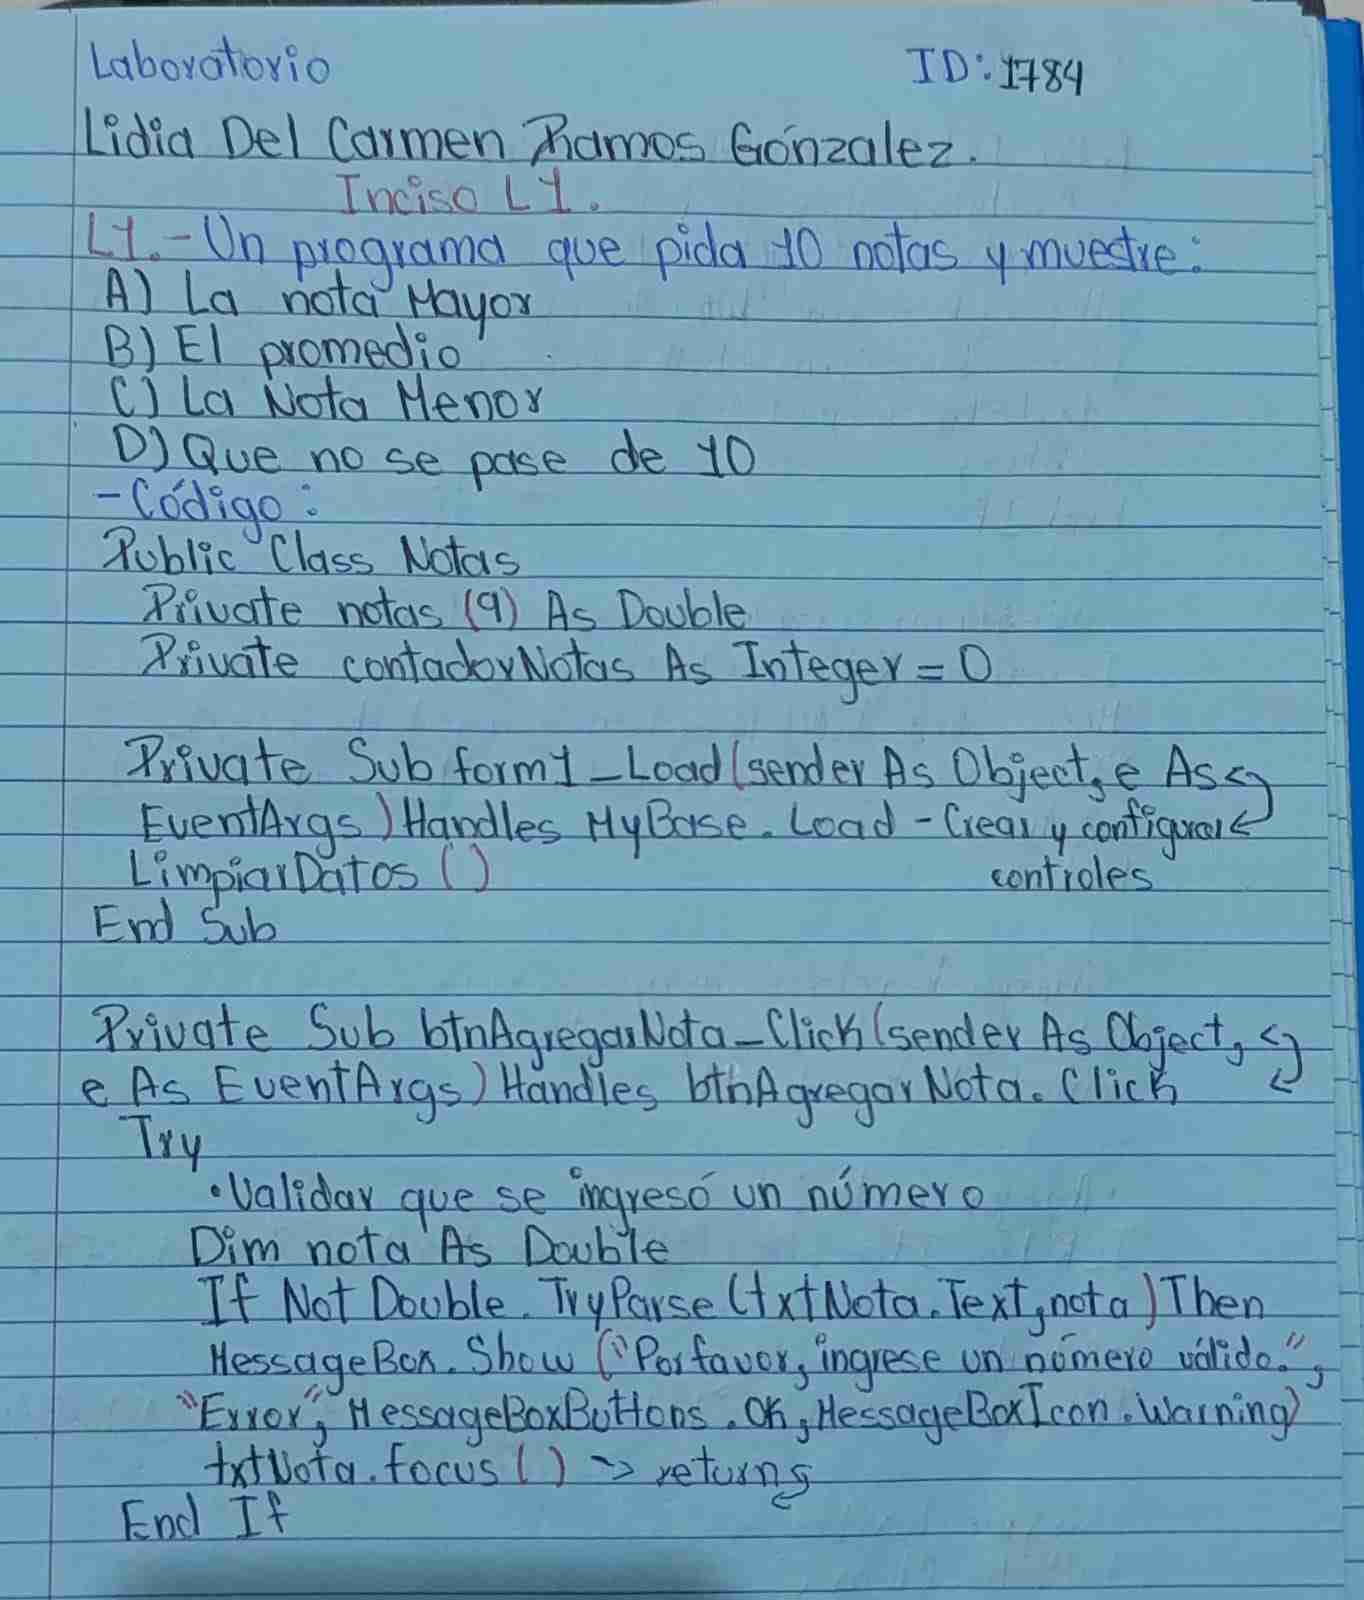 Laboratorio ID: 1784
Lidia Del Carmen Ramos Gónzalez.
Inciso L1.
L1.- Un programa que pida 10 notas y muestre:
A) La nota Mayor
B) El promedio
C) La Nota Menor
D) Que no se pase de 10
- Código:
Public Class Notas
Private notas (9) As Double
Private contadorNotas As Integer = 0
Private Sub form1_Load(sender As Object, e As
EventArgs) Handles MyBase.Load - Crear y configurar
LimpiarDatos () controles
End Sub
Private Sub btnAgregarNota_Click(sender As Object,
e As EventArgs) Handles btnAgregarNota.Click
Try
•Validar que se ingresó un número
Dim nota As Double
If Not Double.TryParse(txtNota.Text, nota) Then
MessageBox.Show ("Por favor, ingrese un número válido.",
"Error", MessageBoxButtons.Ok, MessageBoxIcon.Warning)
txtNota.focus () → returns
End If